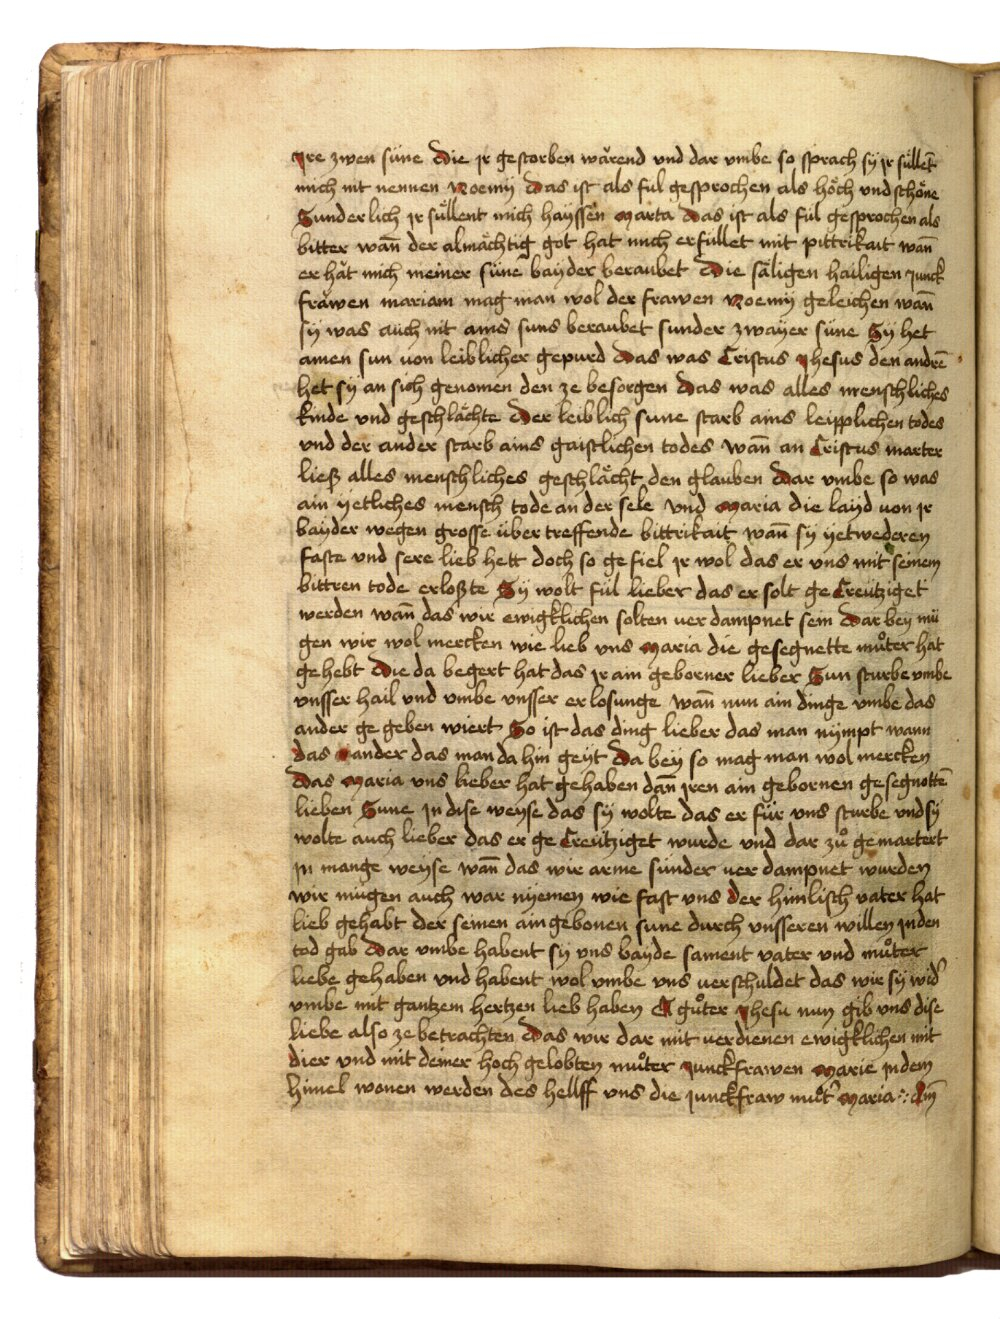 Jre zwen süne Die jr gestorben wärend vnd dar vmbe so sprach sÿ jr süllēt
mich nit nennen Noemÿ Das ist als fúl gesprochen als höch vnd schöne
Sunderlich jr süllent mich haÿssen Marta Das ist als fúl gesprochen als
bitter wan̄ der almächtig got hat mich erfüllet mit pittrikait wan̄
er hät mich meiner süne baÿder beraubet Die säligen hailigen junck
fräwen mariam mag man wol der frawen Noemÿ geleichen wan̄
sÿ was auch nit ains suns beraubet sunder zwaÿer süne Sÿ het
ainen sun von leiblicher gepurd Das was Cristus Jhesus den andrē
het sÿ an sich genomen den ze besorgen Das was alles menschliches
kinde vnd geschlächte Der leiblich sune starb ains leipplichen todes
vnd der ander starb ains gaistlichen todes wan̄ an Cristus marter
ließ alles menschliches geschlächt den glauben Dar vmbe so was
ain ÿetliches mensch tode an der sele vnd Maria die laÿd von jr
baÿder wegen grosse über treffende bittrikait wan̄ sÿ ÿetwederen
faste vnd sere lieb hett doch so gefiel jr wol das er vns mit seinem
bittren tode erloßte Sÿ wolt fúl lieber das er solt ge Creütziget
werden wan̄ das wir ewigklichen solten uer dampnet sein Dar beÿ mü
gen wir wol mercken wie lieb vns Maria die gesegnette muͦter hät
gehebt Die da begert hat das jr ain geborner lieber Sun sturbe vmbe
vnsser hail vnd vmbe vnsser erlosunge wan̄ nun ain dinge vmbe das
ander ge geben wiert So ist das ding lieber das man nÿmpt wann
das ander das man da hin geÿt Da beÿ so mag man wol mercken
Das Maria vns lieber hat gehaben dan̄ jren ain gebornen gesegnottē
lieben Sune Jn dise weÿse das sÿ wolte das er für vns sturbe vnd sÿ
wolte auch lieber das er ge Creütziget wurde vnd dar zuͦ gemartert
jn mange weÿse wan̄ das wir arme sünder uer dampnet wurden
wir mügen auch war nÿemen wie fast vns der himlisch vater hat
lieb gehabt der seinen aingebonen sune durch vnsseren willen jn den
tod gab Dar vmbe habent sÿ vns baÿde sament vater vnd muͦter
liebe gehaben vnd habent wol vmbe vns uerschuldet das wir sÿ wid᷑
vmbe mit gantzem hertzen lieb haben O guͦter Jhesu nun gib vns dise
liebe also ze betrachten Das wir dar mit uerdienen ewigklichen mit
dier vnd mit deiner hoch gelobten muͦter junckfrawen Marie jn dem
himel wonen werden des hellff vns die junckfraw muͦt᷑ Maria ·:· Am̄